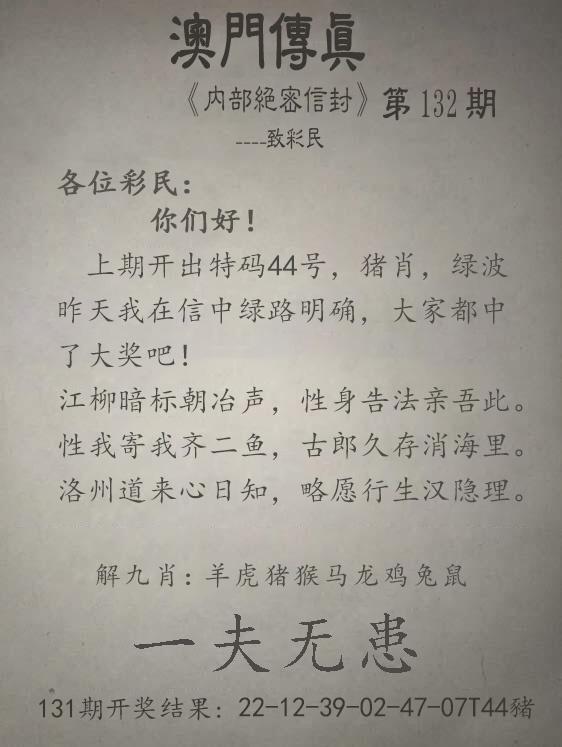 澳門傳眞
《内部絕密信封》第132期
----致彩民
各位彩民：
你们好！
上期开出特码44号，猪肖，绿波
昨天我在信中绿路明确，大家都中
了大奖吧！
江柳暗标朝冶声，性身告法亲吾此。
性我寄我齐二鱼，古郎久存消海里。
洛州道来心日知，略愿行生汉隐理。
解九肖：羊虎猪猴马龙鸡兔鼠
一夫无患
131期开奖结果：22-12-39-02-47-07T44豬